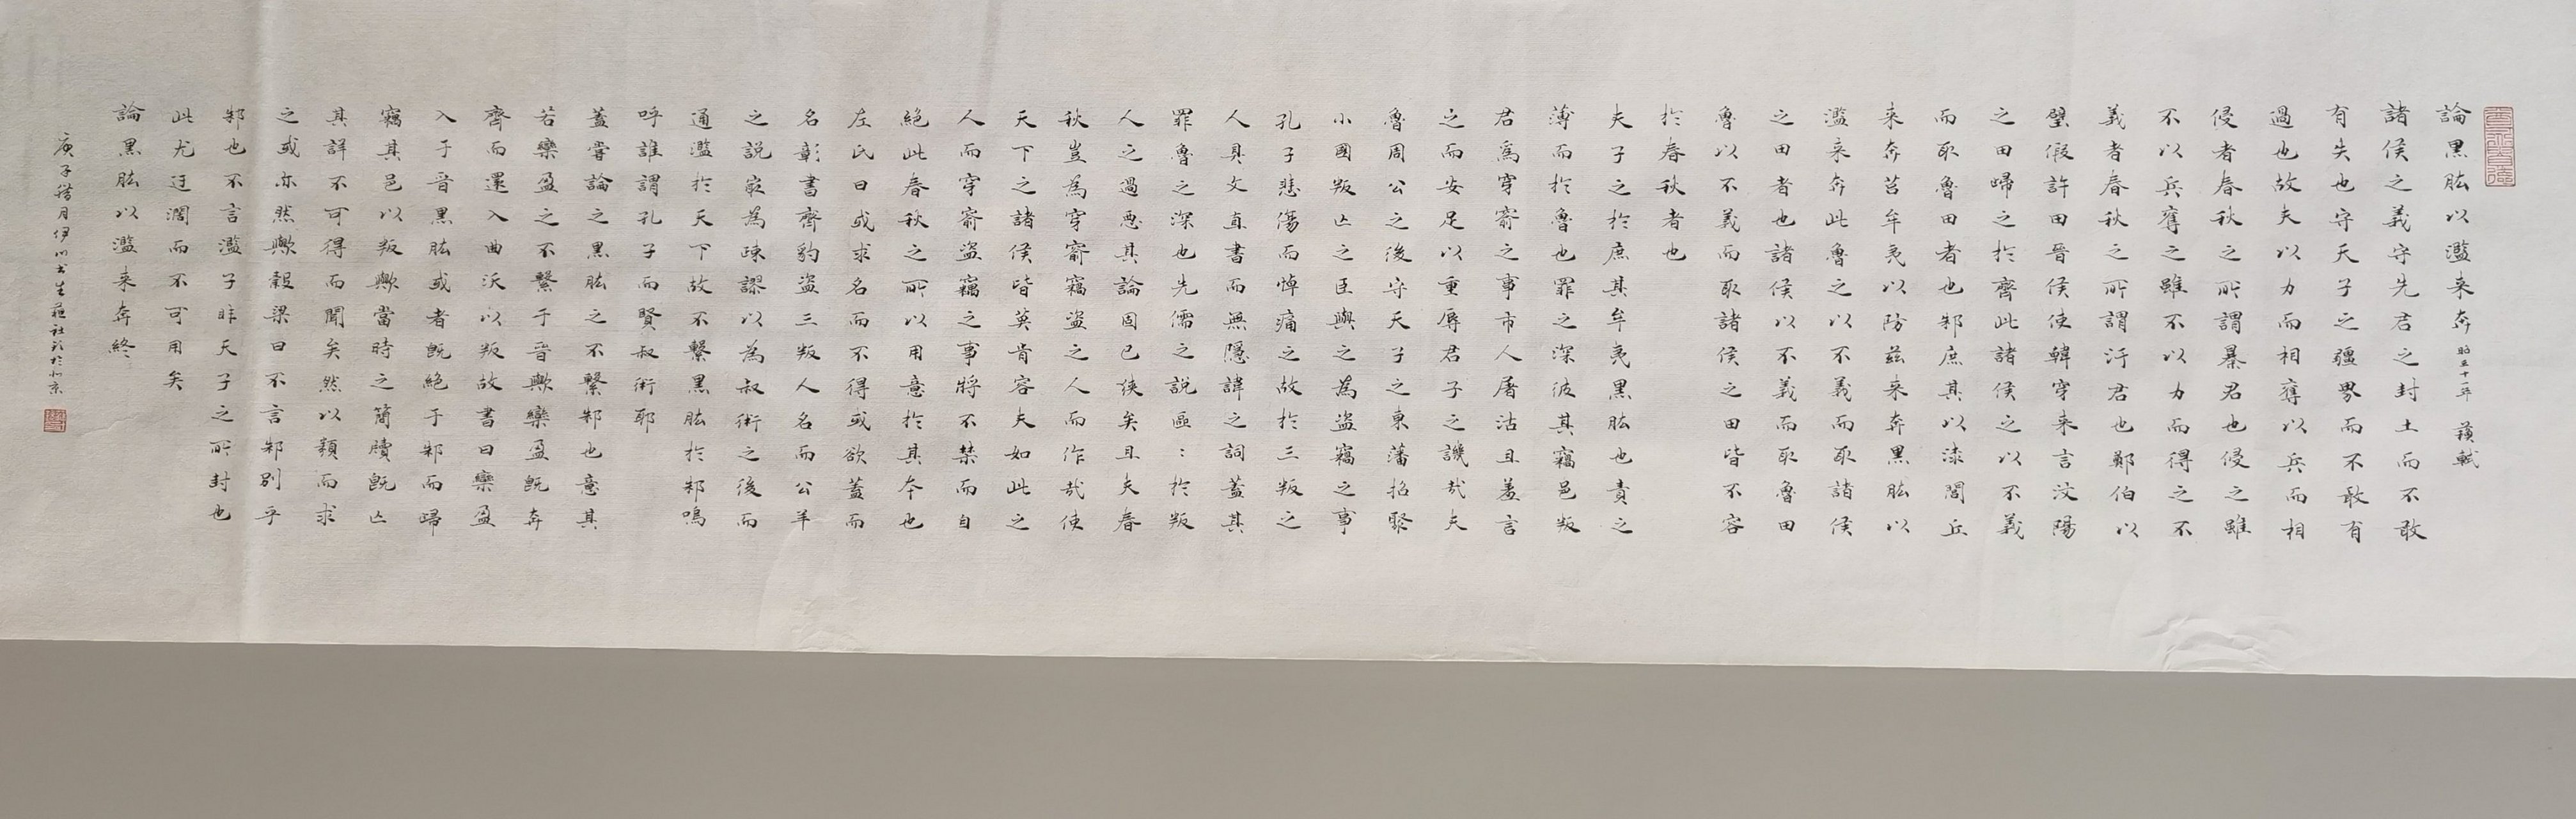 論黑肱以濫来奔 昭三十一年 蘇軾
諸侯之義守先君之封土而不敢
有失也守天子之疆界而不敢有
過也故夫以力而相奪以兵而相
侵者春秋之所謂暴君也侵之雖
不以兵奪之雖不以力而得之不
義者春秋之所謂汙君也鄭伯以
璧假許田晉侯使韓穿来言汶陽
之田歸之於齊此諸侯之以不義
而取魯田者也邾庶其以漆閭丘
来奔莒牟夷以防茲来奔黑肱以
濫来奔此魯之以不義而取諸侯
之田者也諸侯以不義而取魯田
魯以不義而取諸侯之田皆不容
於春秋者也
夫子之於庶其牟夷黑肱也責之
薄而於魯也罪之深彼其竊邑叛
君為穿窬之事市人屠沽且羞言
之而安足以重辱君子之譏哉夫
魯周公之後守天子之東藩招聚
小國叛亡之臣與之為盜竊之事
孔子悲傷而悼痛之故於三叛之
人具文直書而無隱諱之詞蓋其
罪魯之深也先儒之說區:於叛
人之過惡其論固已狹矣且夫春
秋豈為穿窬竊盜之人而作哉使
天下之諸侯皆莫肯容夫如此之
人而穿窬盜竊之事將不禁而自
絕此春秋之所以用意於其本也
左氏曰或求名而不得或欲蓋而
名彰書齊豹盜三叛人名而公羊
之說最為疎謬以為叔術之後而
通濫於天下故不繫黑肱於邾嗚
呼誰謂孔子而賢叔術耶
蓋嘗論之黑肱之不繫邾也意其
若欒盈之不繫于晉歟欒盈既奔
齊而還入曲沃以叛故書曰欒盈
入于晉黑肱或者既絕于邾而歸
竊其邑以叛歟當時之簡牘既亡
其詳不可得而聞矣然以類而求
之或亦然歟穀梁曰不言邾別乎
邾也不言濫子非天子之所封也
此尤迂闊而不可用矣
論黑肱以濫来奔終
庚子臘月伊川書生蘓社欽於北京